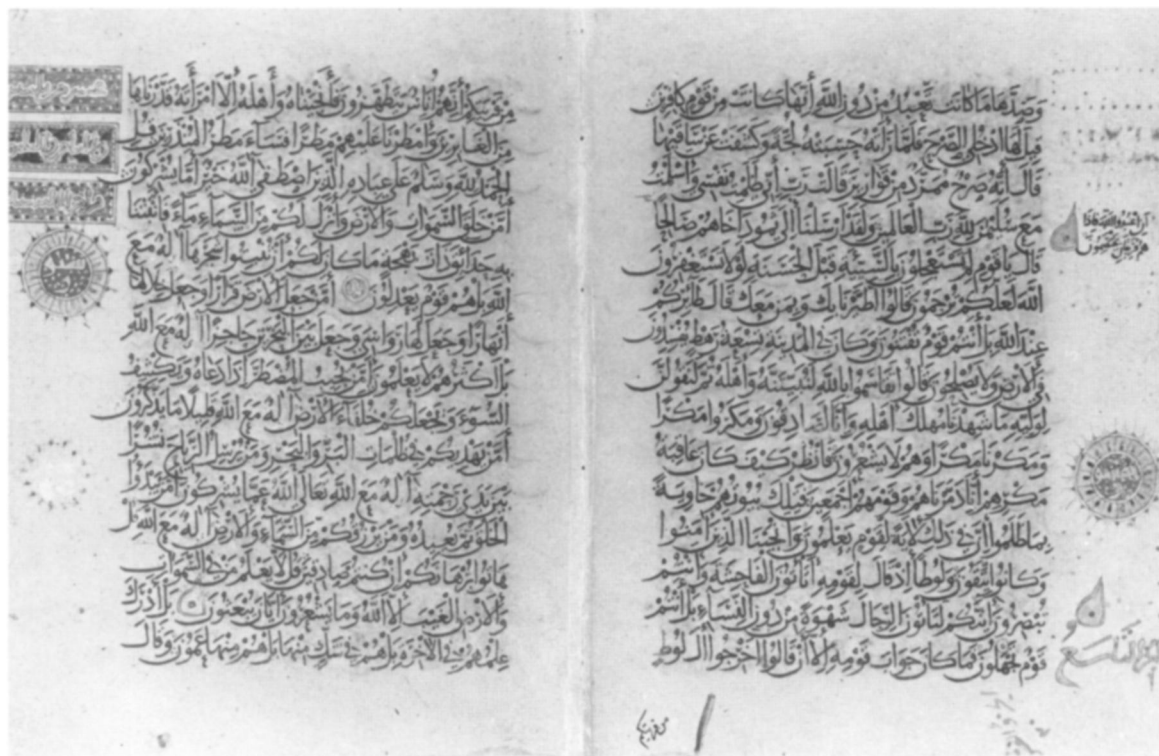 وصدها ما كانت تعبد من دون الله إنها كانت من قوم كافرين
قيل لها ادخلي الصرح فلما رأته حسبته لجة وكشفت عن ساقيها
قال إنه صرح ممرد من قوارير قالت رب إني ظلمت نفسي وأسلمت
مع سليمن لله رب العالمين ولقد أرسلنا إلى ثمود أخاهم صالحا
أن اعبدوا الله فإذا
هم فريقان يختصمون
قال يا قوم لم تستعجلون بالسيئة قبل الحسنة لولا تستغفرون
الله لعلكم ترحمون قالوا اطيرنا بك وبمن معك قال طائركم
عند الله بل أنتم قوم تفتنون وكان في المدينة تسعة رهط يفسدون
في الأرض ولا يصلحون قالوا تقاسموا بالله لنبيتنه وأهله ثم لنقولن
لوليه ما شهدنا مهلك أهله وإنا لصادقون ومكروا مكرا
ومكرنا مكرا وهم لا يشعرون فانظر كيف كان عاقبة
مكرهم أنا دمرناهم وقومهم أجمعين فتلك بيوتهم خاوية
بما ظلموا إن في ذلك لآية لقوم يعلمون وأنجينا الذين آمنوا
وكانوا يتقون ولوطا إذ قال لقومه أتأتون الفاحشة وأنتم
تبصرون أئنكم لتأتون الرجال شهوة من دون النساء بل أنتم
قوم تجهلون فما كان جواب قومه إلا أن قالوا أخرجوا آل لوط
من قريتكم
من قريتكم إنهم أناس يتطهرون فأنجيناه وأهله إلا امرأته قدرناها
من الغابرين وأمطرنا عليهم مطرا فساء مطر المنذرين قل
الحمد لله وسلم على عباده الذين اصطفى آلله خير أما يشركون
أمن خلق السموات والأرض وأنزل لكم من السماء ماء فأنبتنا
به حدائق ذات بهجة ما كان لكم أن تنبتوا شجرها أإله مع
الله بل هم قوم يعدلون أمن جعل الأرض قرارا وجعل خلالها
أنهارا وجعل لها رواسي وجعل بين البحرين حاجزا أإله مع الله
بل أكثرهم لا يعلمون أمن يجيب المضطر إذا دعاه ويكشف
السوء ويجعلكم خلفاء الأرض أإله مع الله قليلا ما تذكرون
أمن يهديكم في ظلمات البر والبحر ومن يرسل الرياح نشرا
بين يدي رحمته أإله مع الله تعالى الله عما يشركون أمن يبدؤا
الخلق ثم يعيده ومن يرزقكم من السماء والأرض أإله مع الله قل
هاتوا برهانكم إن كنتم صادقين قل لا يعلم من في السموات
والأرض الغيب إلا الله وما يشعرون أيان يبعثون بل ادارك
علمهم في الآخرة بل هم في شك منها بل هم منها عمون وقال